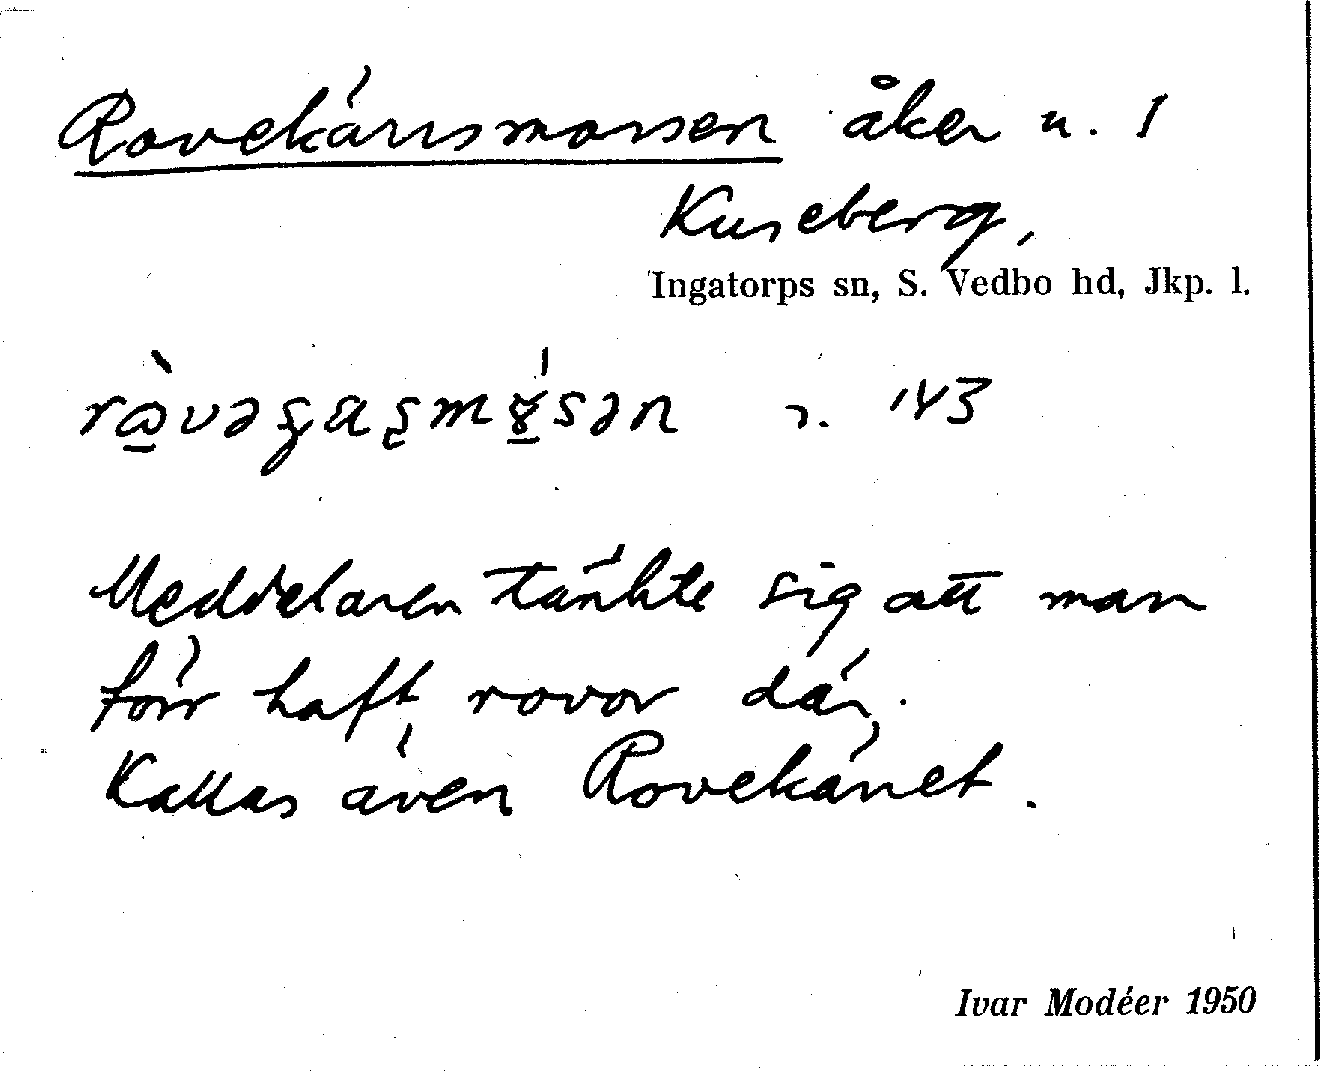 Rovekärrsmossen åker n. 1
Kuseberg,
Ingatorps sn, S. Vedbo hd, Jkp. l.
143
Meddelaren tänkte sig att man
förr haft rovor där.
Kallas även Rovekärret.
Ivar Modéer 1950